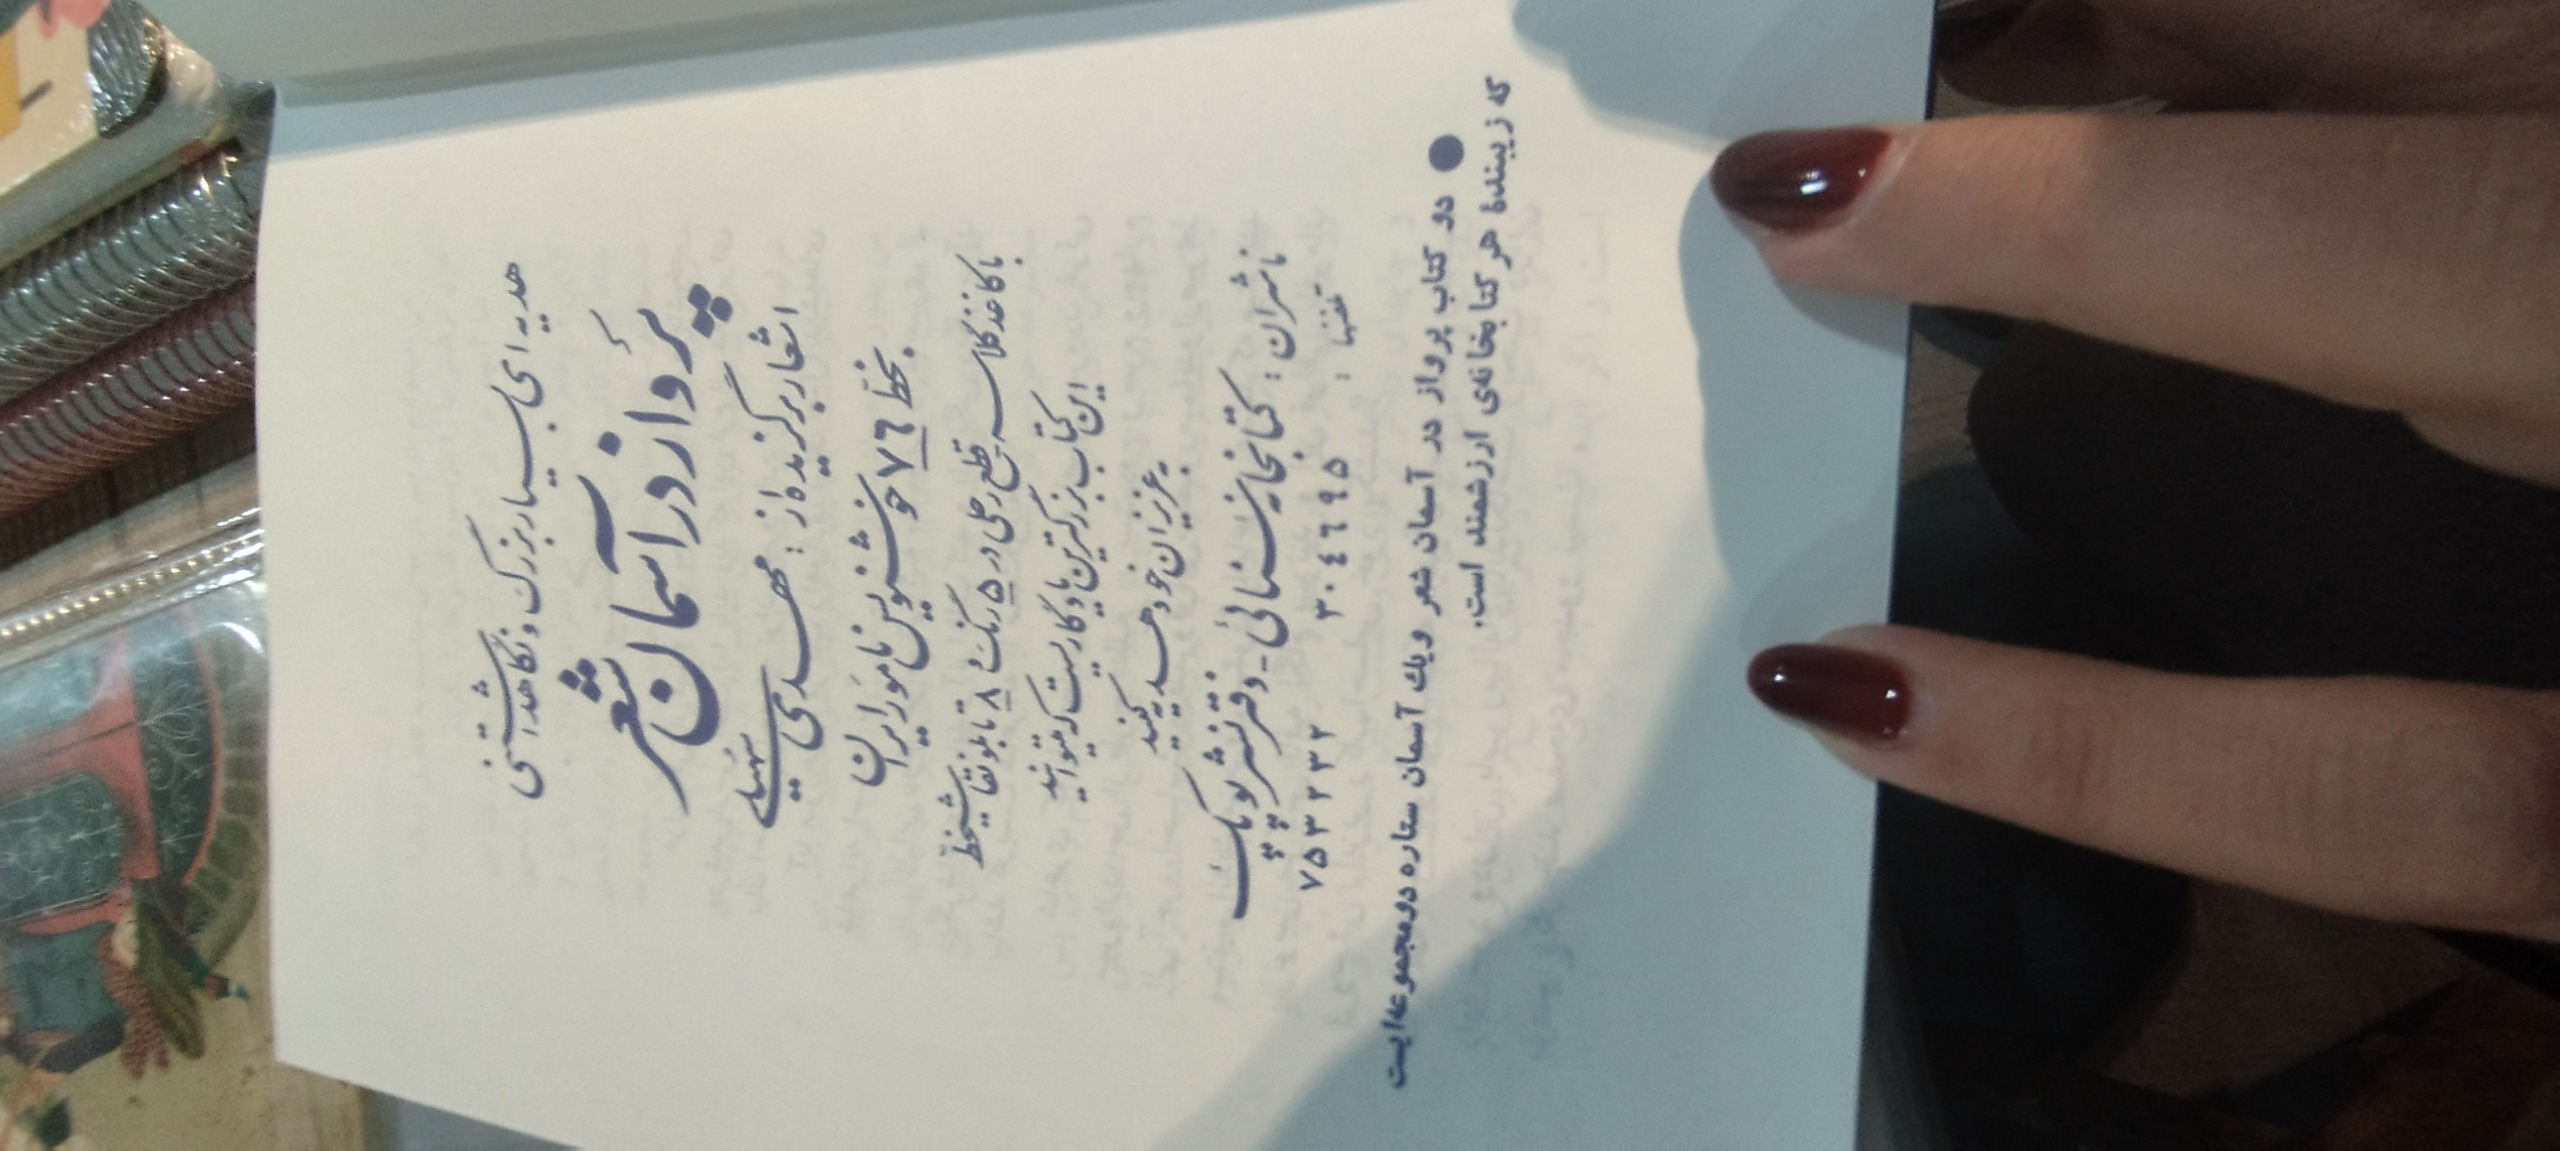 هدیه ای بسیار بزرگ و نگاهداشتنی
پرواز در آسمان شعر
اشعار برگزیده از : مهدی سهیلی
بخط ۷۶ خوشنویس نامور ایران
با کاغذ گلاسه قطع رحلی در ۵ رنگ و ۸ تابلو نقاشیخط
این کتاب بزرگترین یادگاریست که میتوانید
به عزیزان خود هدیه کنید
ناشران : کتابخانه سنائی - دفتر نشر پوپک
تلفنها : ۳۰۴۶۹۵ ۷۵۳۲۳۲
● دو کتاب پرواز در آسمان شعر و یک آسمان ستاره دو مجموعه‌ایست
که زیبندهٔ هر کتابخانه‌ی ارزشمند است.